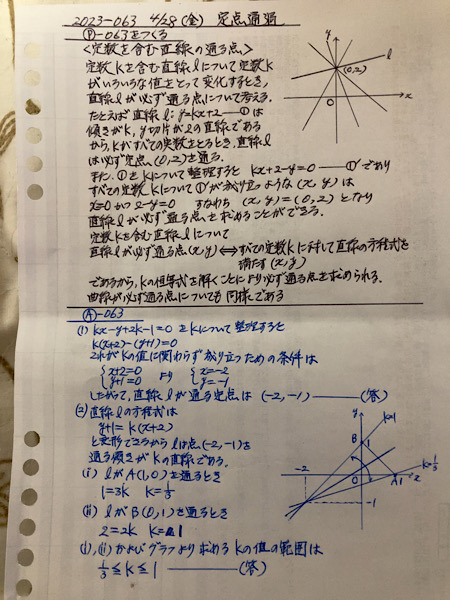 2023-063 4/28(金) 定点通過
Ⓟ-063をつくる
<定数を含む直線の通る点>
定数kを含む直線lについて定数k
がいろいろな値をとって変化するとき,
直線lが必ず通る点について考える.
たとえば直線l:y=kx+2―①は
傾きがk, y切片が2の直線である
から,kがすべての実数をとるとき,直線l
は必ず定点(0,2)を通る.
また①をkについて整理すると kx+2-y=0 ―①'であり
すべての定数kについて①'が成り立つような(x,y)は
x=0かつ2-y=0 すなわち (x,y)=(0,2)となり
直線lが必ず通る点を求めることができる.
定数kを含む直線lについて
直線lが必ず通る点(x,y)⇔すべての定数kに対して直線の方程式を
満たす(x,y)
であるから,kの恒等式を解くことにより必ず通る点を求められる.
曲線が必ず通る点についても同様である
y
l
(0,2)
O
x
Ⓐ-063
(1) kx-y+2k-1=0をkについて整理すると
k(x+2)-(y+1)=0
これがkの値に関わらず成り立つための条件は
{x+2=0 y+1=0 より {x=-2 y=-1
したがって,直線lが通る定点は(-2,-1)―(答)
(2) 直線lの方程式は
y+1=k(x+2)
と変形できるからlは点(-2,-1)を
通る傾きがkの直線である.
(i) lがA(1,0)を通るとき
1=3k k=1/3
(ii) lがB(0,1)を通るとき
2=2k k=1
(i),(ii)およびグラフより求めるkの値の範囲は
1/3≦k≦1 ―(答)
y
k=1
B
1
k=1/3
-2
O
A1
x
-1